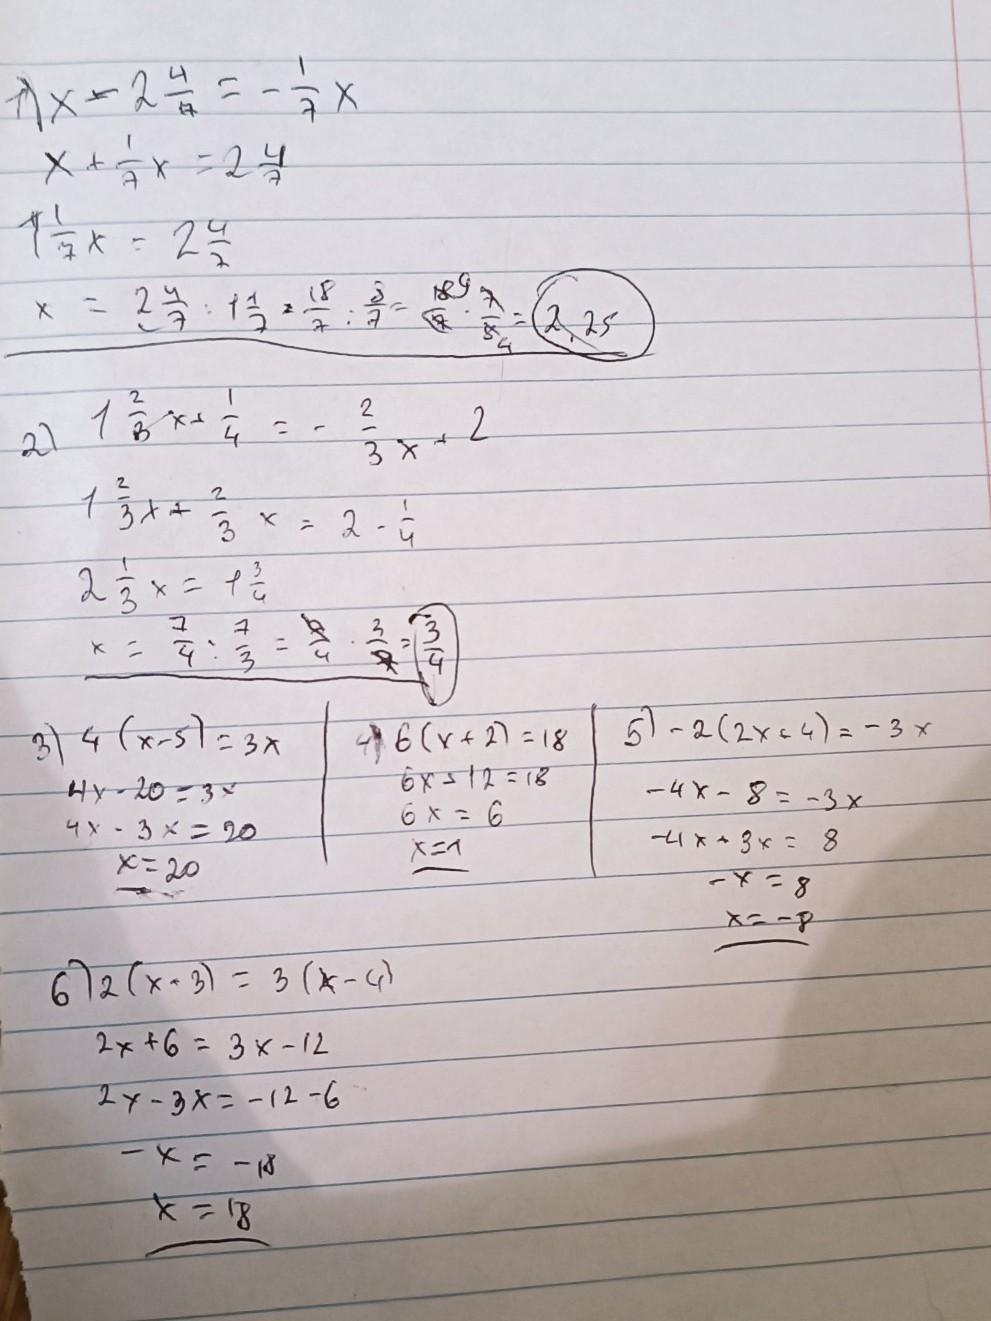 1) x - 2 4/7 = - 1/7 x
x + 1/7 x = 2 4/7
1 1/7 x = 2 4/7
x = 2 4/7 : 1 1/7 = 18/7 : 8/7 = 18/7 · 7/8 = 2,25
9
4
2) 1 2/3 x + 1/4 = - 2/3 x + 2
1 2/3 x + 2/3 x = 2 - 1/4
2 1/3 x = 1 3/4
x = 7/4 : 7/3 = 7/4 · 3/7 = 3/4
3) 4 (x-5) = 3x
4x - 20 = 3x
4x - 3x = 20
x = 20
4) 6 (x + 2) = 18
6x + 12 = 18
6x = 6
x = 1
5) -2 (2x + 4) = -3x
-4x - 8 = -3x
-4x + 3x = 8
-x = 8
x = -8
6) 2 (x + 3) = 3 (x - 4)
2x + 6 = 3x - 12
2x - 3x = -12 - 6
-x = -18
x = 18